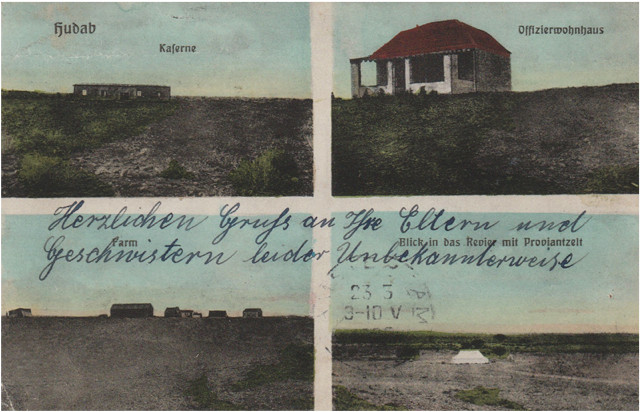 Hudab
Kaserne
Offizierwohnhaus
Herzlichen Gruss an Ihre Eltern und
Farm
Blick in das Revier mit Proviantzelt
Geschwistern leider Unbekannterweise
23 3
8-10 V